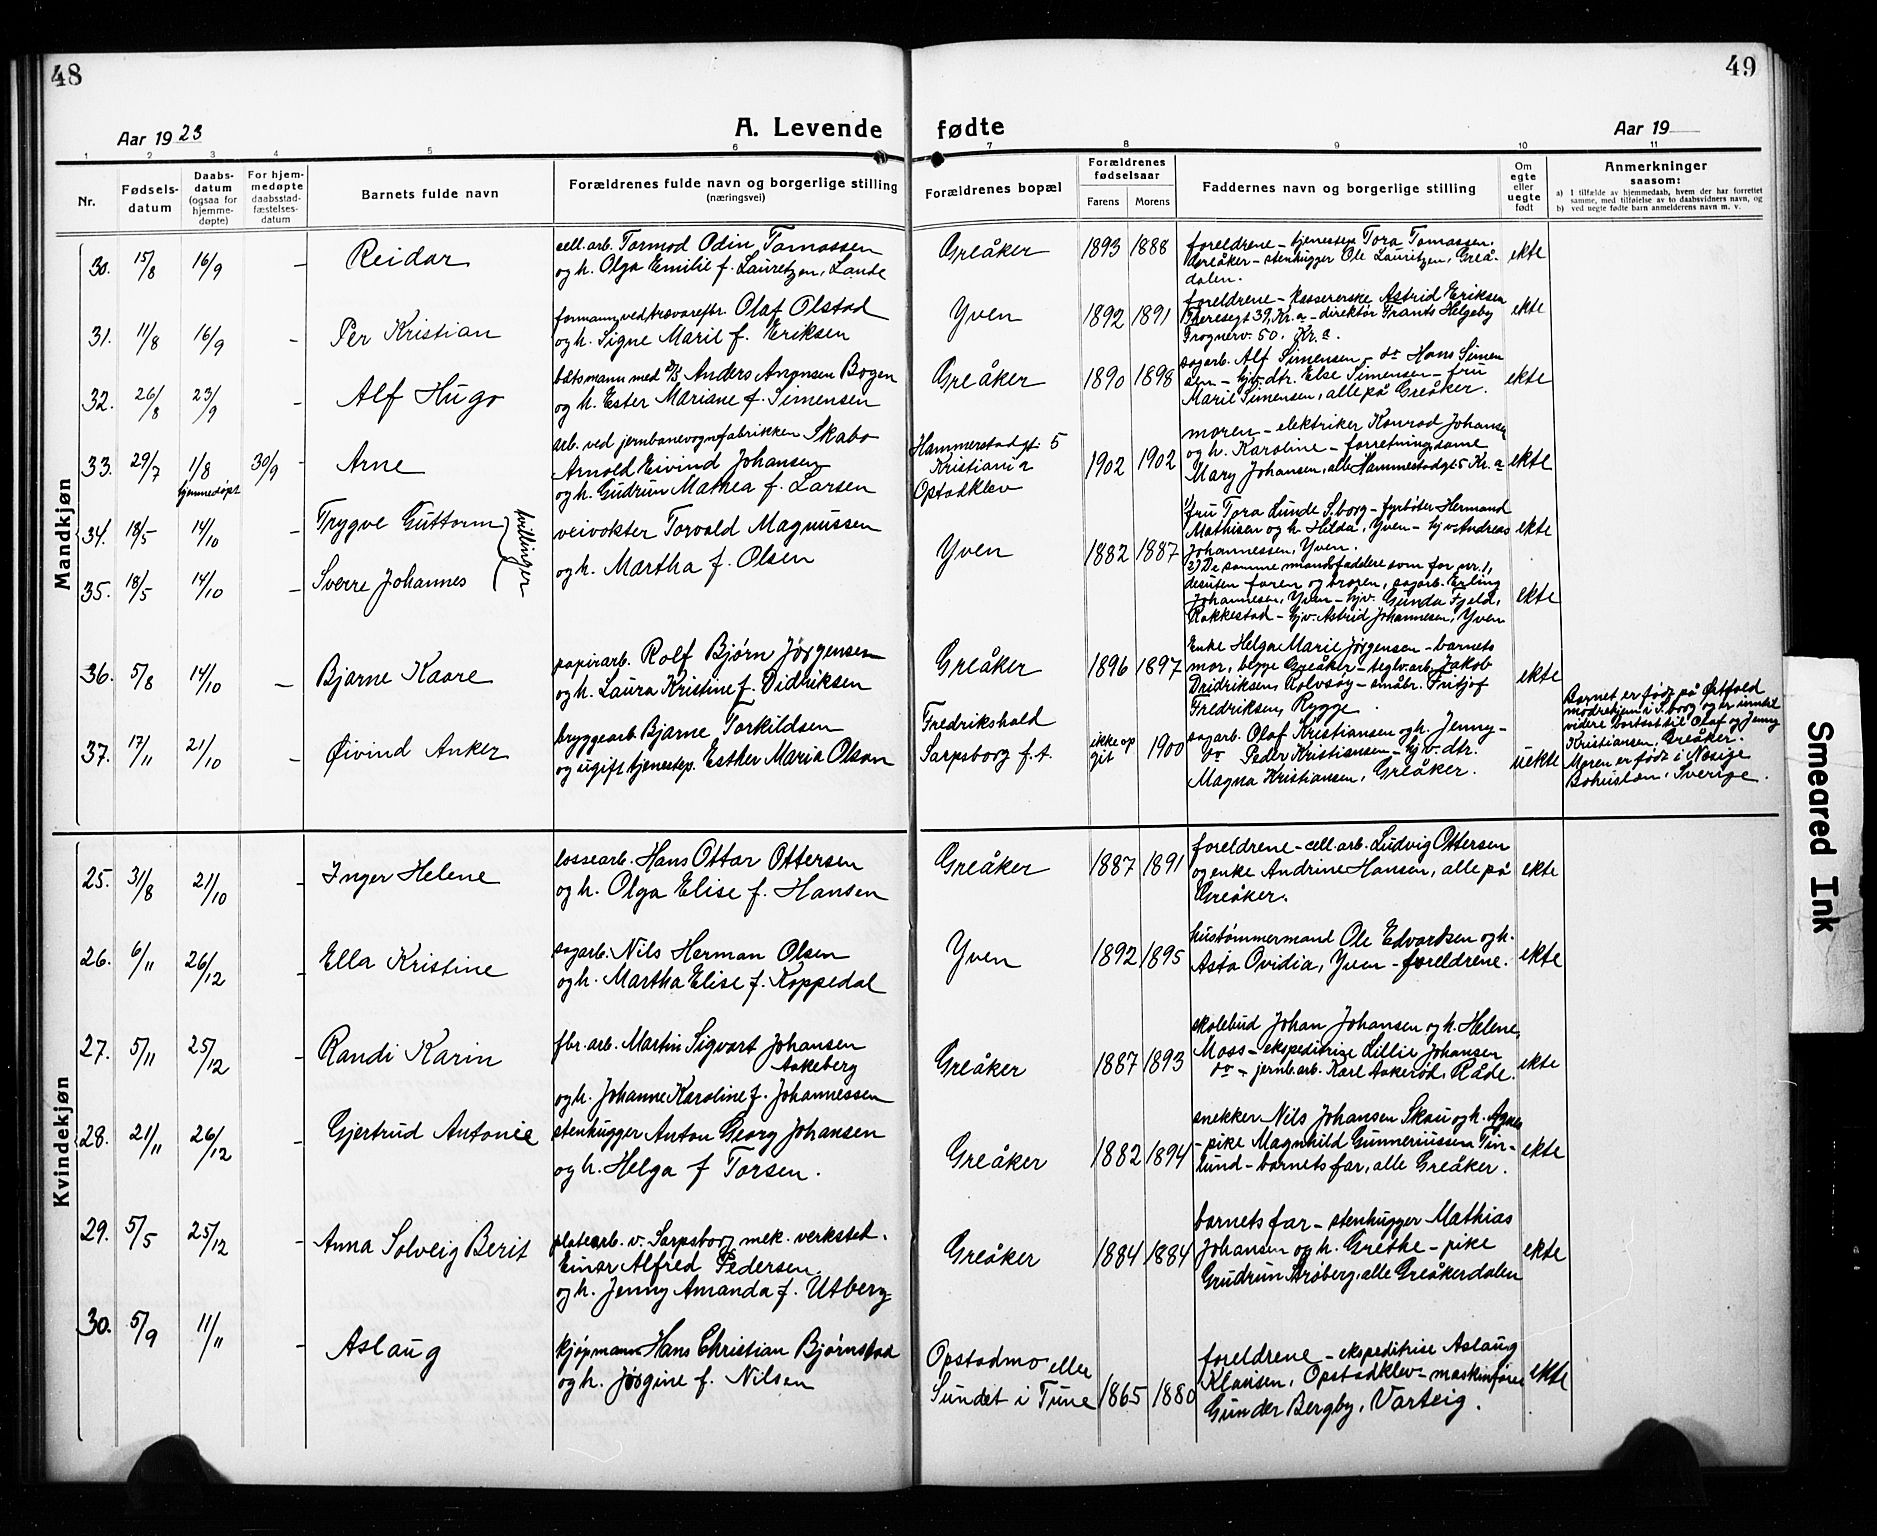 48
Aar 1923
A. Levende
1 2 3 4 5 6
Nr.
Fødsels-
datum
Daabs-
datum
(ogsaa for
hjemme-
døpte)
For hjem-
medøpte
daabsstad-
fæstelses-
datum
Barnets fulde navn
Forældrenes fulde navn og borgerlige stilling
(næringsvei)
Mandkjøn
30. 15/8 16/9 – Reidar
cell. arb. Tormod Odin Tomassen
og h. Olga Emilie f. Lauretzen, Lande
31. 11/8 16/9 – Per Kristian
formann ved trævarefbr. Olaf Olstad
og h. Signe Maril f. Eriksen
32. 26/8 23/9 – Alf Hugo
båtsmann med D/S Anders Aronsen Bogen
og h. Ester Mariane f. Simensen
33. 29/7 1/8 30/9 – Arne
hjemmedøpt
arb. ved jernbanevognfabrikken Skabo
Arnold Eivind Johansen
og h. Gudrun Mathea f. Larsen
34. 18/5 14/10 – Trygve Guttorm
tvillinger
35. 18/5 14/10 – Sverre Johannes
veivokter Torvald Magnussen
og h. Martha f. Olsen
36. 5/8 14/10 – Bjarne Kaare
papirarb. Rolf Bjørn Jørgensen
og h. Laura Kristine f. Didriksen
37. 17/11 21/10 – Øivind Anker
bryggearb. Bjarne Torkildsen
og ugift tjenestep. Esther Maria Olsson
Kvindekjøn
25. 31/8 21/10 – Inger Helene
lossearb. Hans Ottar Ottersen
og h. Olga Elise f. Hansen
26. 6/11 26/12 – Ella Kristine
sagarb. Nils Herman Olsen
og h. Martha Elise f. Koppedal
27. 5/11 25/12 – Randi Karin
fbr. arb. Martin Sigvart Johansen
Aakeberg
og h. Johanne Karoline f. Johannessen
28. 21/11 26/12 – Gjertrud Antonie
stenhugger Anton Georg Johansen
og h. Helga f Torsen.
29. 5/5 25/12 – Anna Solveig Berit
platearb. v. Sarpsborg mek. verksted.
Einar Alfred Pedersen
og h. Jenny Amanda f. Utberg
30. 5/9 11/11 – Aslaug
kjøpmann Hans Christian Bjørnstad
og h. Jørgine f. Nilsen
49
fødte
Aar 19
7 8 9 10 11
Forældrenes bopæl
Forældrenes
fødselsaar
Farens Morens
Faddernes navn og borgerlige stilling
Om
egte
eller
uegte
født
Anmerkninger
saasom:
a) I tilfælde av hjemmedaab, hvem der har forrettet
samme, med tilføielse av to daabsvidners navn, og
b) ved uegte fødte barn anmelderens navn m. v.
Greåker 1893 1888
foreldrene – tjenestepi Tora Tomassen.
Greåker – stenhugger Ole Lauritzen, Greå-
dalen.
ekte
Yven 1892 1891
foreldrene – kassererske Astrid Eriksen
Theresegt 39, Kr.a – direktør Frants Helgeby
Frognerv. 50, Kr.a.
ekte
Greåker 1890 1898
sagarb. Alf Simensen – do Hans Simen
sen – hjv. dtr. Else Simensen – fru
Maril Simensen, alle på Greåker.
ekte
Hammerstadgt. 5
Kristiania
Opstadklev
1902 1902
moren – elektriker Konrad Johansen
og h. Karoline – forretningsdame
Mary Johansen, alle Hammestadgt 5 Kr. a
ekte
Yven 1882 1887
1) fru Tora Lunde S.borg – fyrbøter Hermand
Mathisen og h. Hilda, Yven – hjv. Andreas
Johannessen, Yven.
ekte
2) De samme mandsfaddere som for nr. 1,
desuten faren og broren, sagarb. Erling
Johannesen, Yven – hjv. Gunda Fjeld,
Rakkestad – hjv. Astrid Johannesen, Yven
ekte
Greåker 1896 1897
Enke Helga Marie Jørgensen – barnets
mor, begge Greåker – teglv. arb. Jakob
Dridriksen, Rolvsøy – småbr. Fritjof
Fredriksen, Rygge.
ekte
Fredrikshald
Sarpsborg f. t.
ikke op
git 1900
sagarb. Olaf Kristiansen og h. Jenny –
do Peder Kristiansen – hj. v. dtr.
Magna Kristiansen, Greåker.
uekte
Barnet er født på Østfold
mødrehjem i S.borg og er
videre bortsat til Olaf og Jenny
Kristiansen, Greåker.
Moren er født i Nesige
Bohuslän, Sverige.
Greåker 1887 1891
foreldrene – cell. arb. Ludvig Ottersen
og enke Andrine Hansen, alle på
Greåker.
ekte
Yven 1892 1895
hustømmermand Ole Edvardsen og h.
Asta Ovidia, Yven – foreldrene.
ekte
Greåker 1887 1893
skolebud Johan Johansen og h. Helene,
Moss – ekspeditrise Lillie Johansen
do – jernb. arb. Karl Aakerød, Råde.
ekte
Greåker 1882 1894
snekker Nils Johansen Skau og h. Agnes
– pike Magnhild Gunneriussen Tin-
lund – barnets far, alle Greåker.
ekte
Greåker 1884 1884
barnets far – stenhugger Mathias
Johansen og h. Grethe – pike
Grudrun Strøberg, alle Greåkerdalen
ekte
Opstadmo eller
Sundet i Tune
1865 1880
foreldrene – ekspeditrise Aslaug
Klausen, Opstadklev – maskinfører
Gunder Bergby, Varteig.
ekte
Smeared Ink